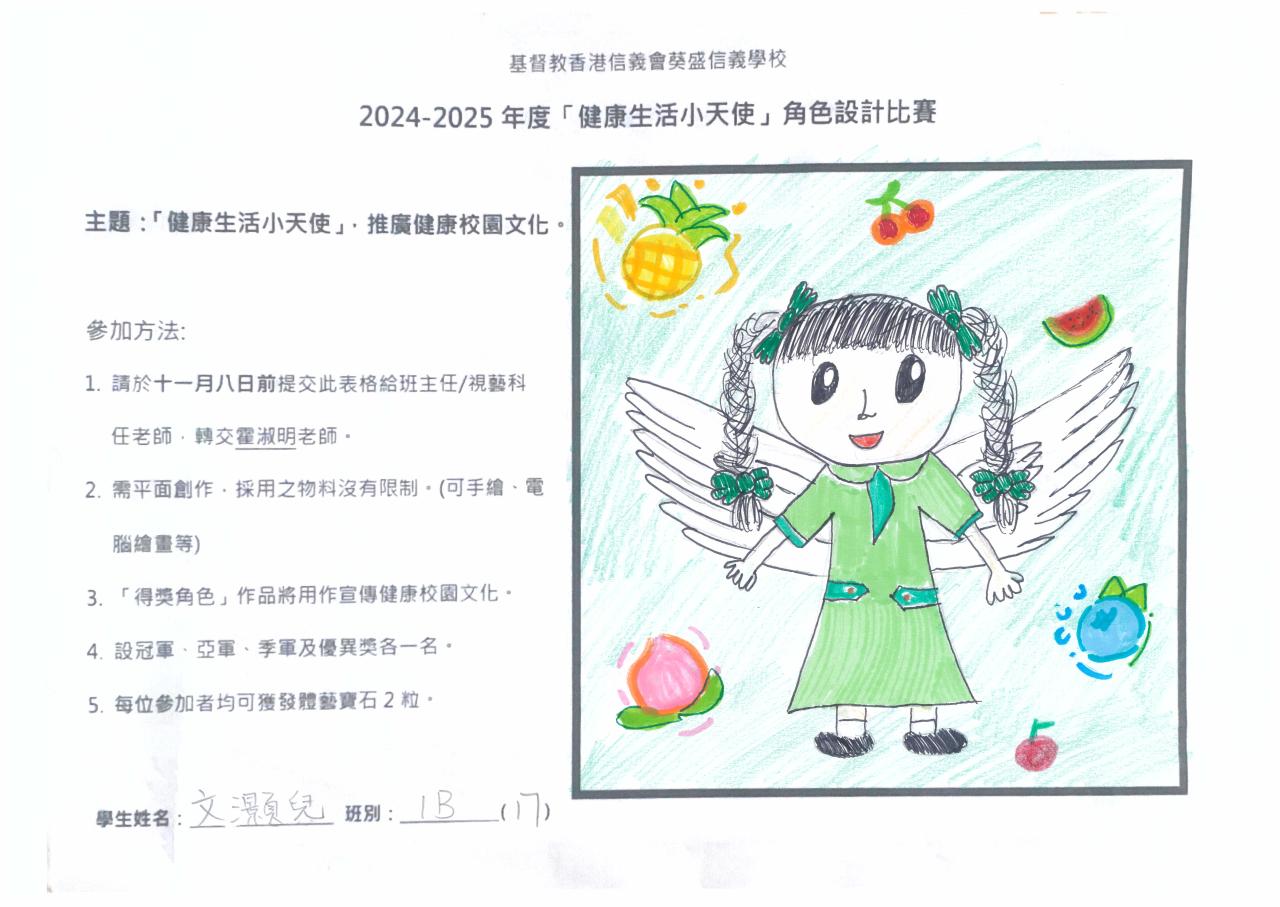 基督教香港信義會葵盛信義學校
2024-2025 年度「健康生活小天使」角色設計比賽
主題：「健康生活小天使」，推廣健康校園文化。
參加方法:
1. 請於十一月八日前提交此表格給班主任/視藝科
任老師，轉交霍淑明老師。
2. 需平面創作，採用之物料沒有限制。(可手繪、電
腦繪畫等)
3. 「得獎角色」作品將用作宣傳健康校園文化。
4. 設冠軍、亞軍、季軍及優異獎各一名。
5. 每位參加者均可獲發體藝寶石 2 粒。
學生姓名：文灝兒 班別：1B (17)